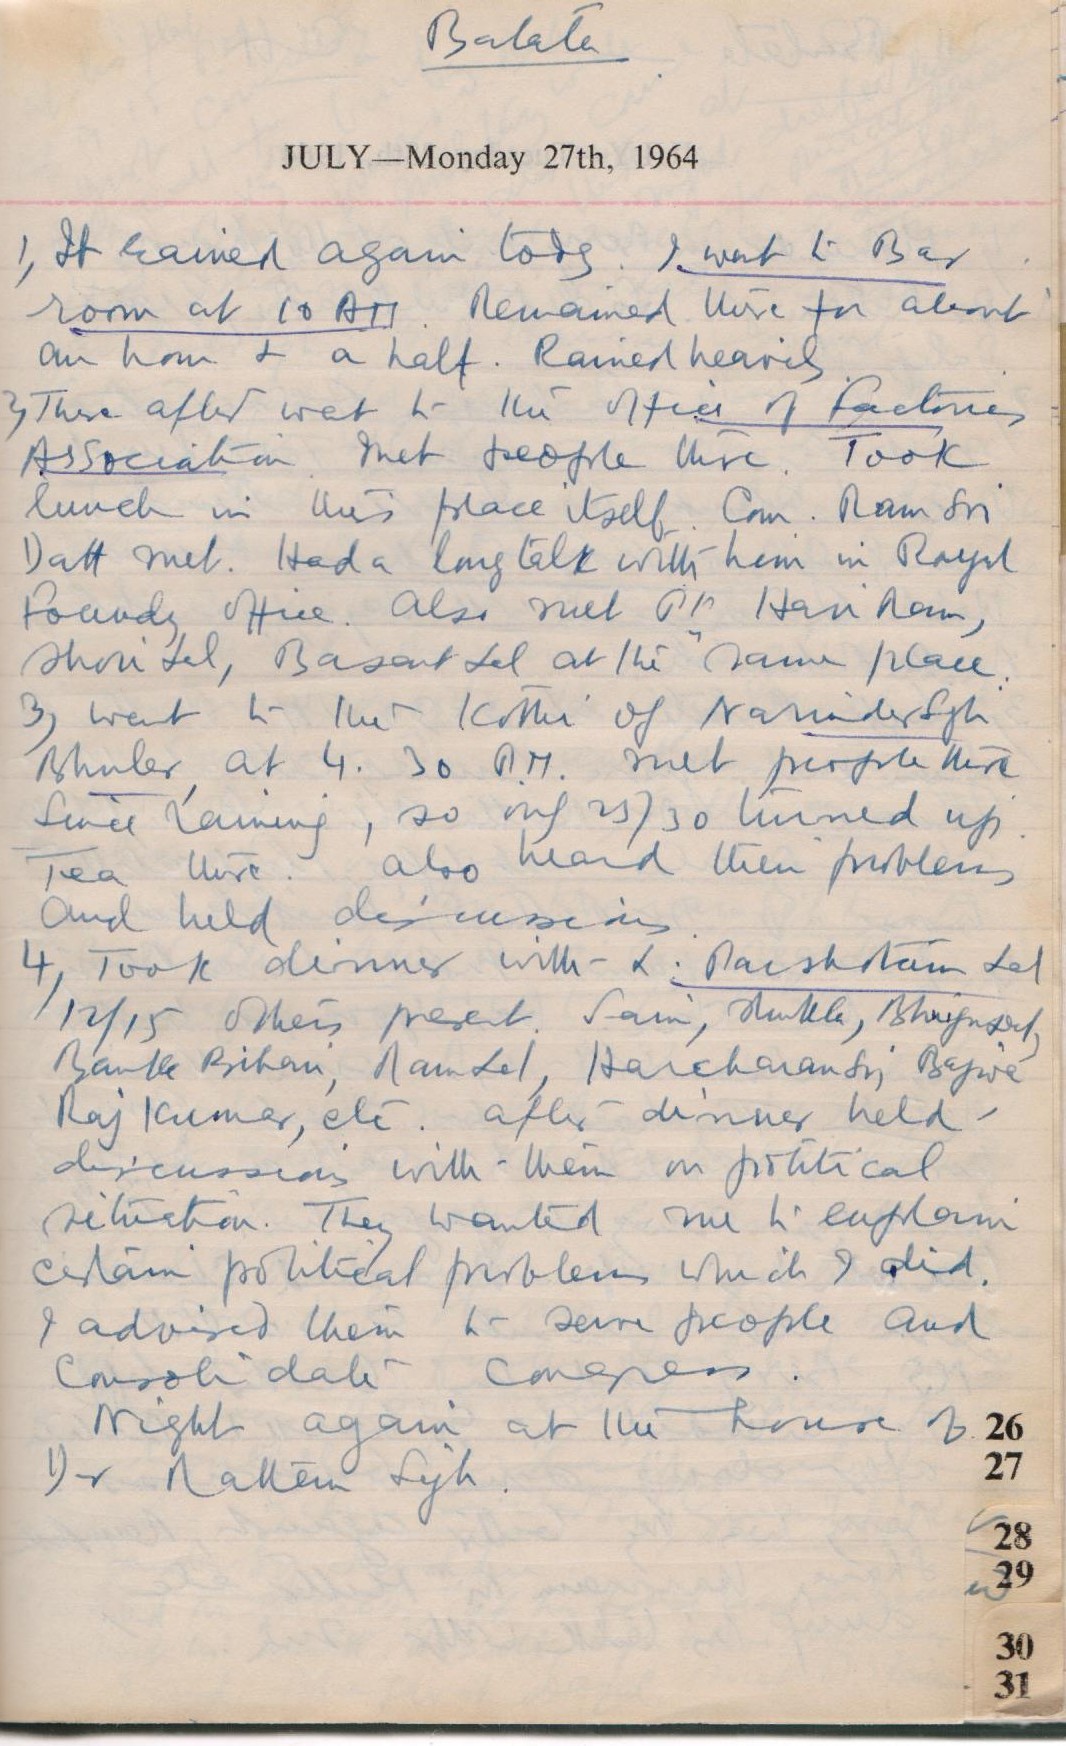 Batala
JULY—Monday 27th, 1964
1, It rained again today. I went to Bar
room at 10 AM. Remained there for about
an hour & a half. Rained heavily
2, There after went to the office of Factories
Association. Met people there. Took
lunch in this place itself. Com. Ram
Datt met. Had a long talk with him in Royal
Foundry office. Also met Hari Ram,
Shori Lal, Basant Lal at the same place.
3, Went to the Kothi of Narinder Sgh
at 4.30 P.M. Met people there
Since raining, so only 25/30 turned up.
Tea there. Also heard their problems
and held discussions.
4, Took dinner with L. Parshotam Lal
12/15 others present. Saini, Shukla,
Banke Bihari, Ram Lal, Harcharan Bajwa
Raj Kumar, etc. After dinner held
discussions with them on political
situation. They wanted me to explain
certain political problems which I did.
I advised them to serve people and
Consolidate Congress.
Night again at the house of
Dr Rattan Sgh.
26
27
28
29
30
31